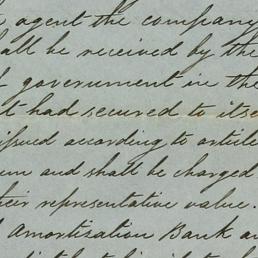 agent the company
shall be received by the
of government in the
it had secured to itse
issued according to article
em and shall be charged
their representative value.
Amortization Bank an